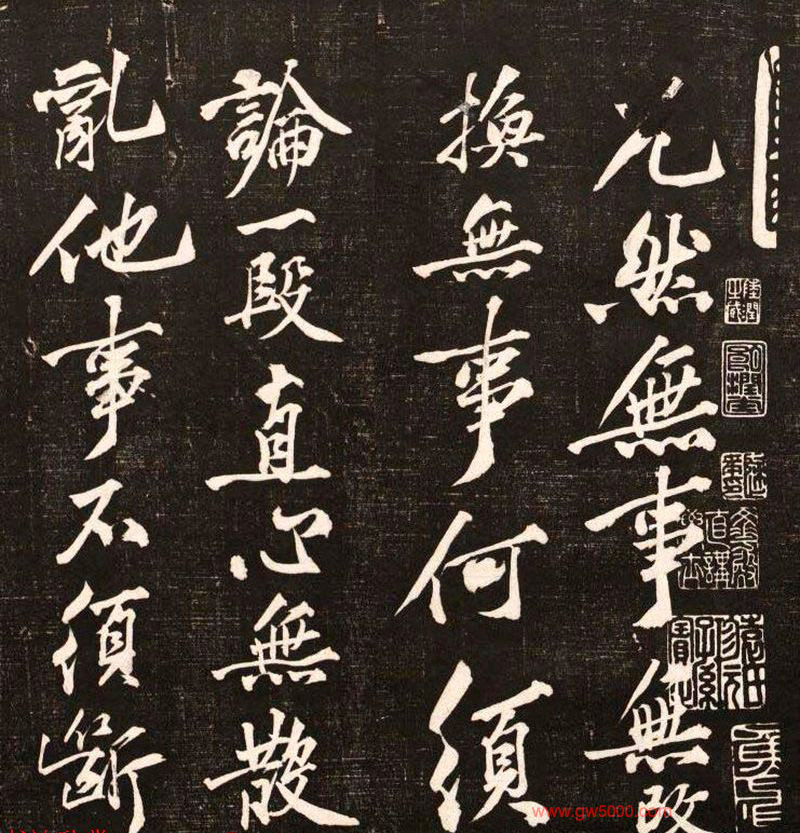 兀然無事無改
換無事何須
論一段直心無散
亂他事不須斷
www.gw5000.com